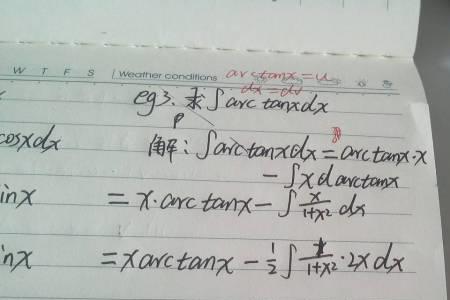 W T F S Weather conditions arctanx=u
dx=dv
eg3. 求∫arctanxdx
cosxdx
解：∫arctanxdx=arctanx·x
-∫xdarctanx
inx =x·arctanx-∫x/(1+x²)dx
inx =xarctanx-1/2∫1/(1+x²)·2xdx